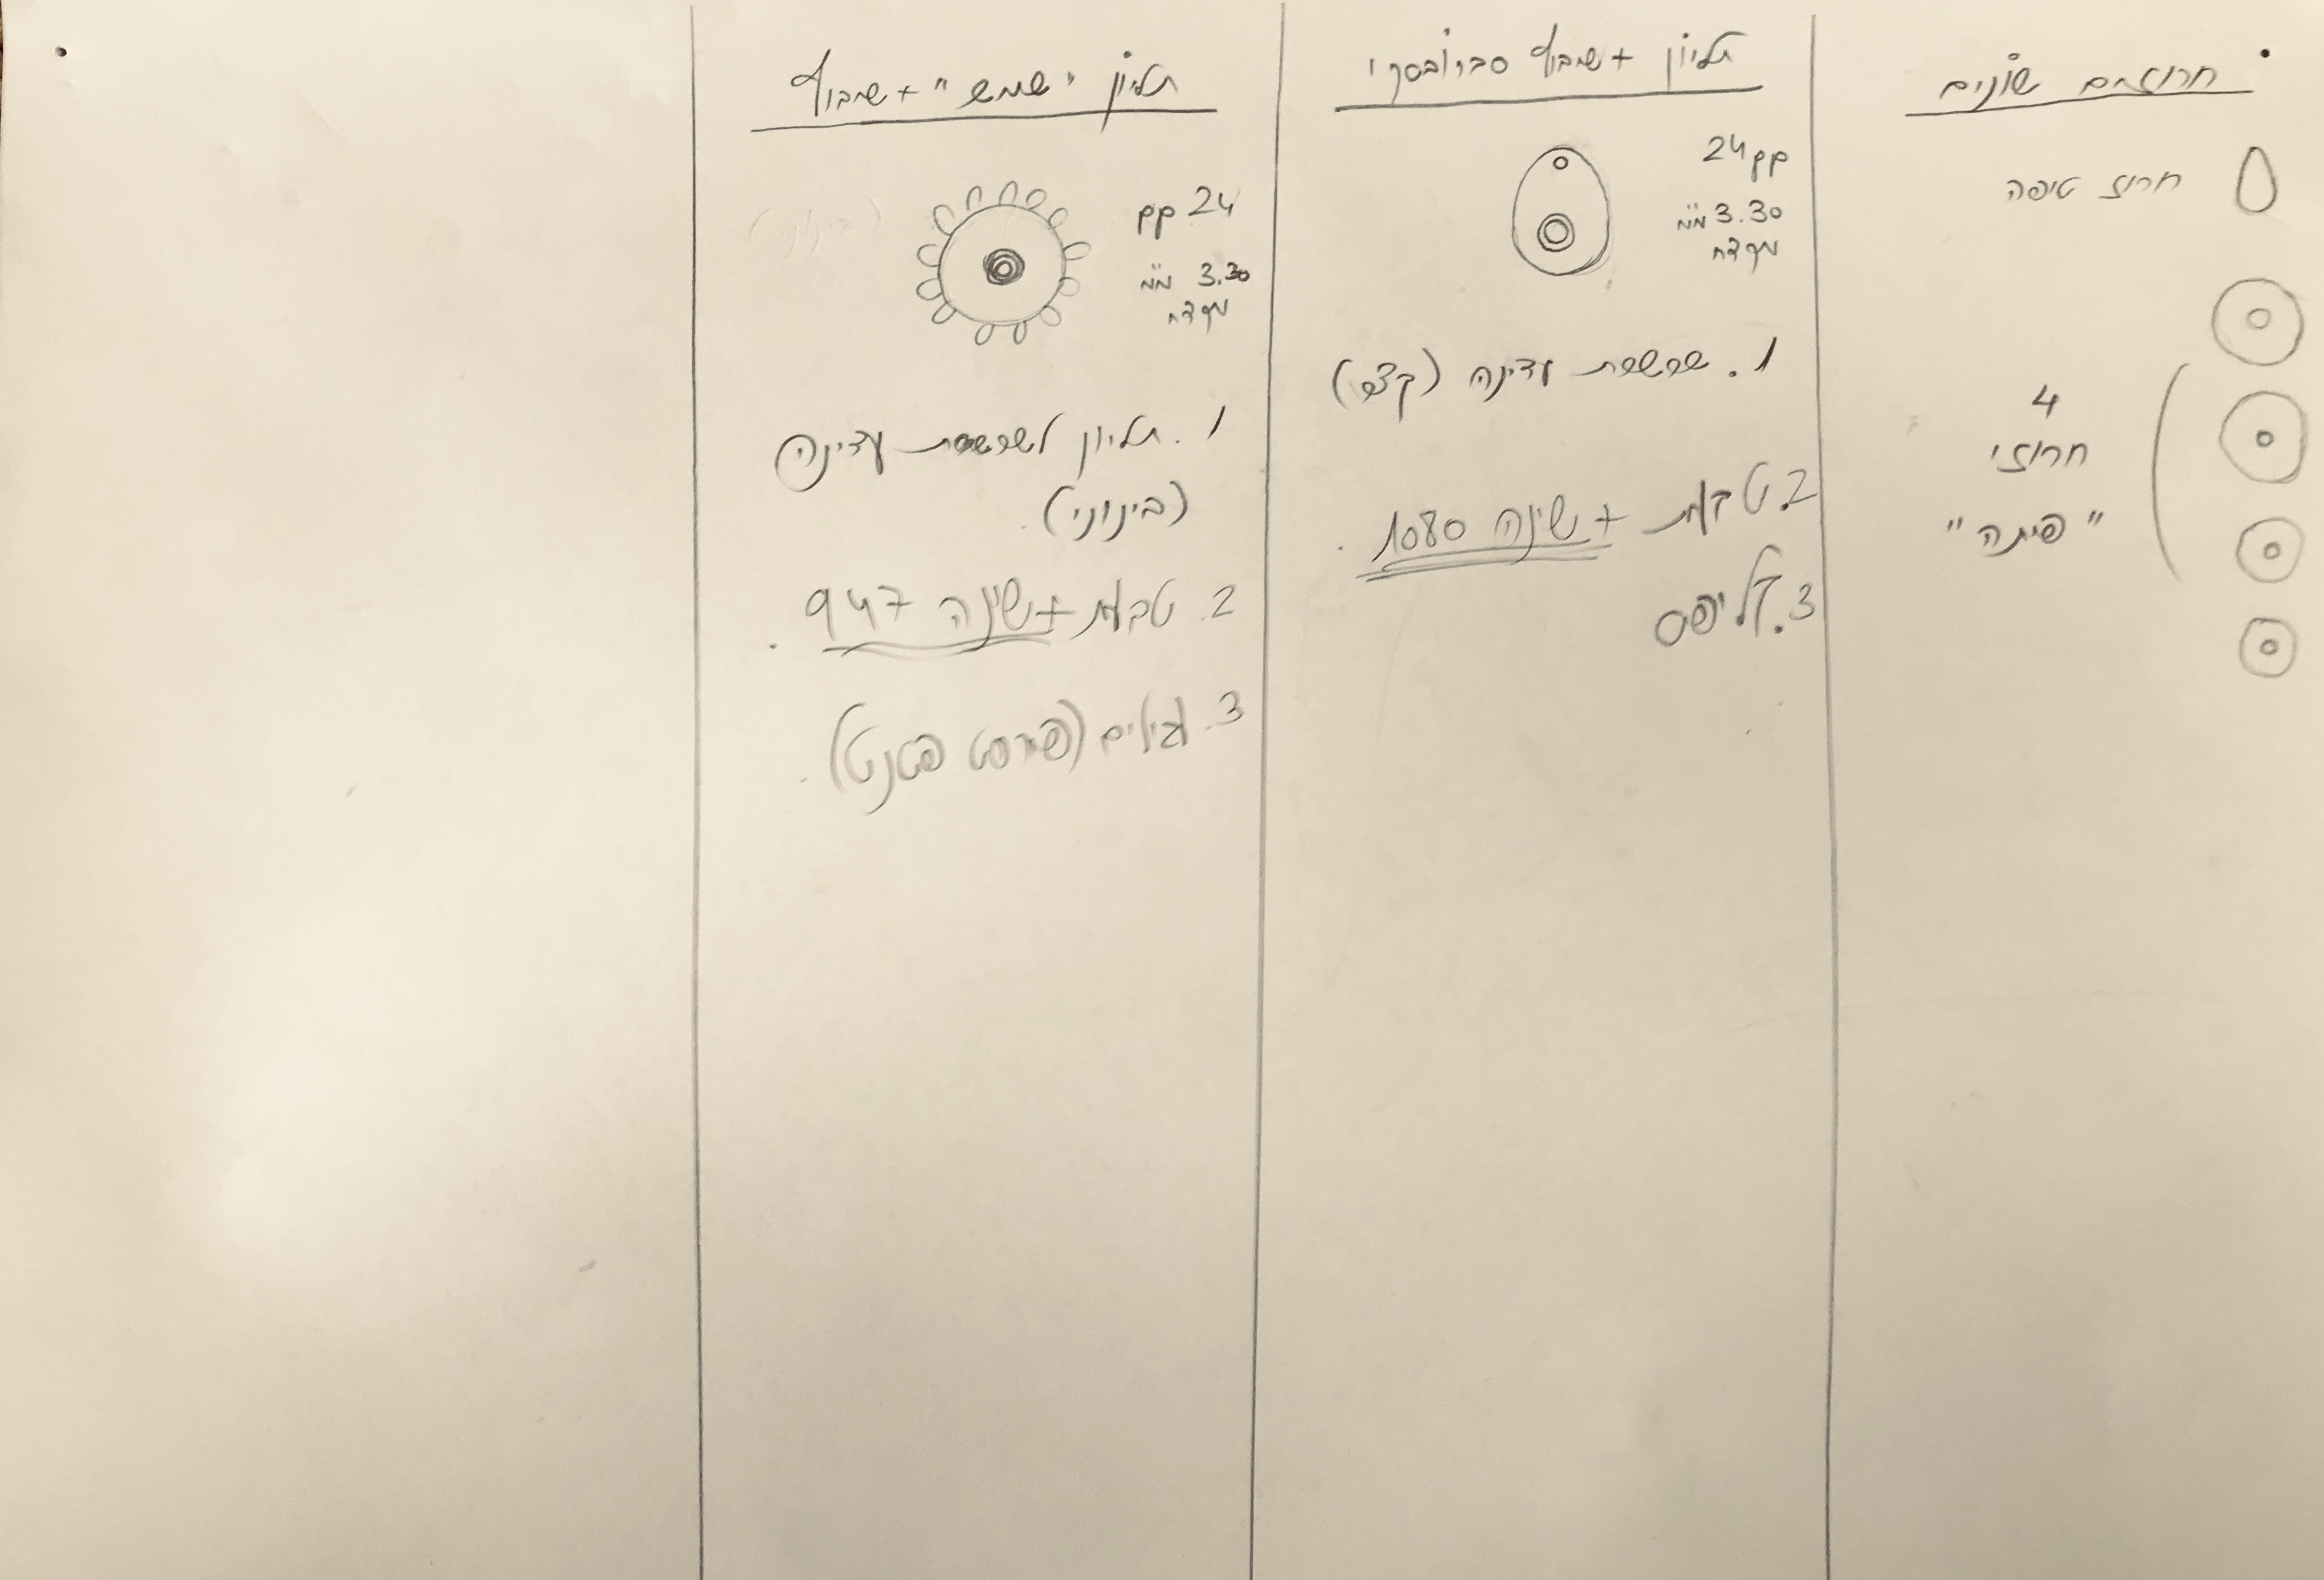 חרוזים שונים
חרוז טיפה
4
חרוזי
"פיתה"
תליון + שיבוץ סברובסקי
24 pp
3.30 מ"מ
מקדח
1. שרשרת עדינה (קצר)
2. טבעת + שינה 1080.
3. קליפס
תליון "שמש" + שיבוץ
24 pp
3.30 מ"מ
מקדח
1. תליון לשרשרת עדינה
(בינוני).
2. טבעת + שינה 947.
3. עגילים (פירסט פטנט).
(בינוני)